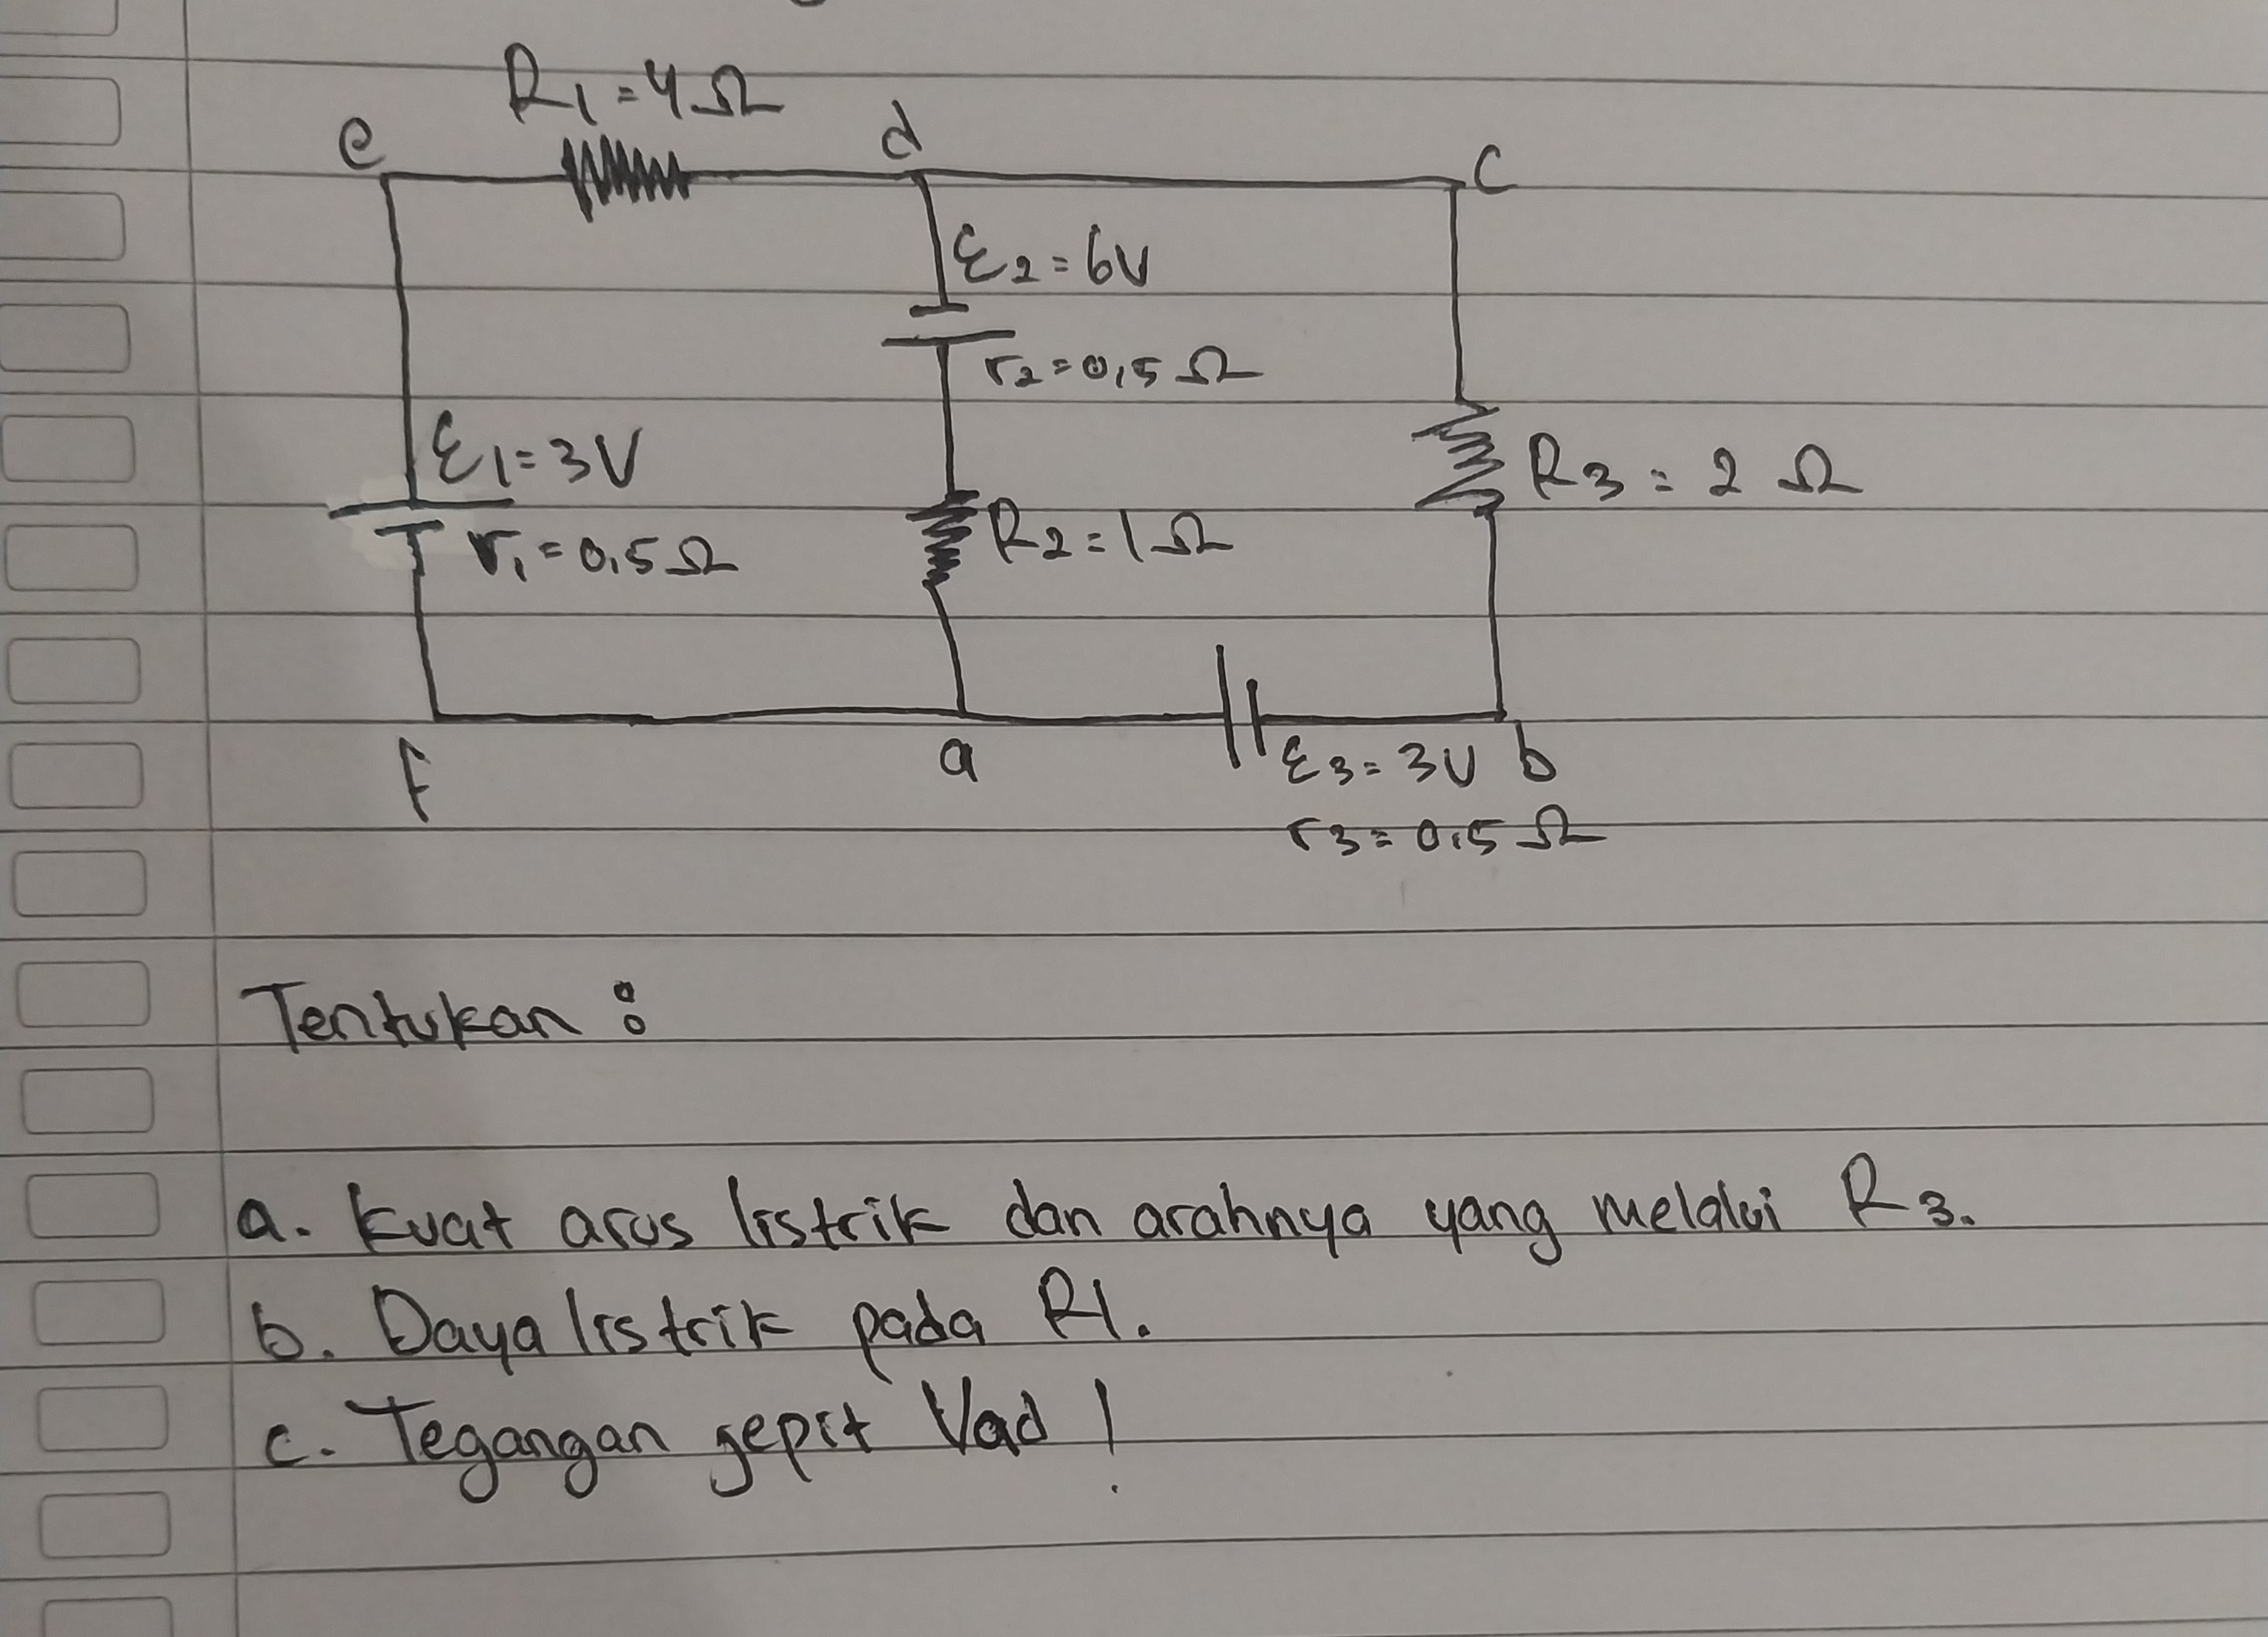 R1 = 4Ω
e
d
c
ε2 = 6V
r2 = 0,5 Ω
ε1 = 3V
r1 = 0,5 Ω
R2 = 1Ω
R3 = 2 Ω
f
a
ε3 = 3V
b
r3 = 0,5 Ω
Tentukan :
a. Kuat arus listrik dan arahnya yang melalui R3.
b. Daya listrik pada R1.
c. Tegangan jepit Vad !